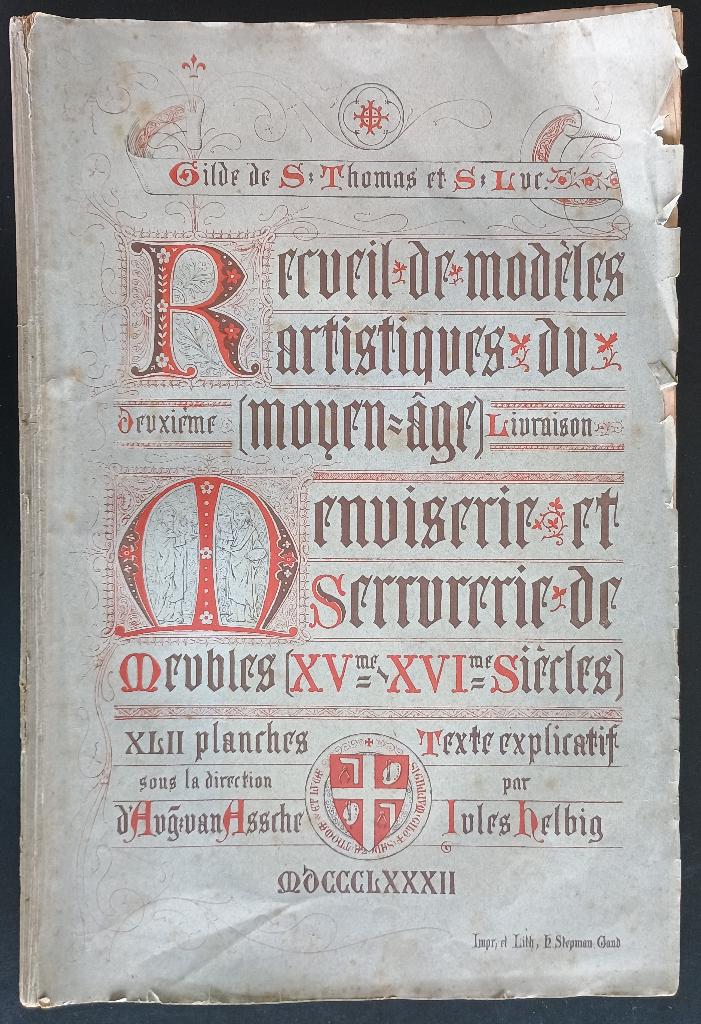 Gilde de S: Thomas et S: Luc.
Recueil de modèles
artistiques du
Deuxième (moyen=âge) Livraison
Menuiserie et
Serrurerie de
Meubles (XVme, XVIme Siècles)
XLII planches Texte explicatif
sous la direction par
d'Aug: van Assche Jules Helbig
MDCCCLXXXII
Impr. et Lith, H. Stepman Gand